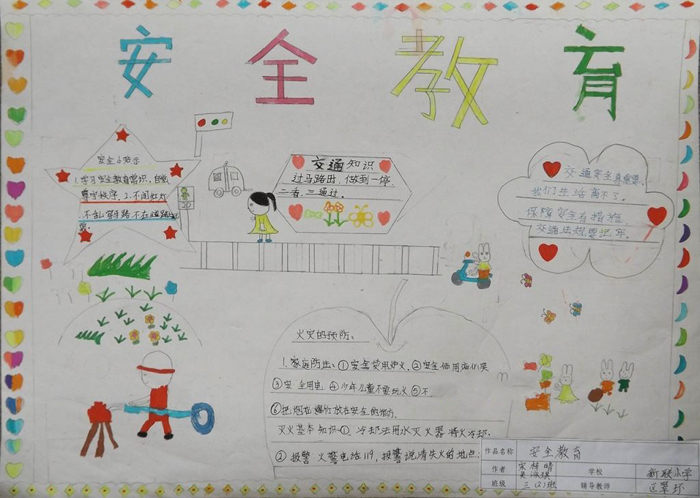 安全教育
安全小知识
1.学习安全教育常识，自觉
遵守秩序，2.不闯红灯
不乱穿马路不在道路
交通知识
过马路出，做到一停
二看，三通过。
交通安全真重要
我们生活离不了，
保障安全有措施
交通法规要记牢。
火灾的预防、
1.家庭防止、①安全使用炉火、②安全使用液化气
③安全用电、④少年儿童不要玩火⑤不
⑥把烟花爆竹放在安全的地方。
灭火基本知识①、冷却法用水灭火器将火冷却；
②报警火警电话119，报警说清失火的地点；
作品名称 安全教育
作者 学校 新联小学
班级 三(2)班 辅导教师